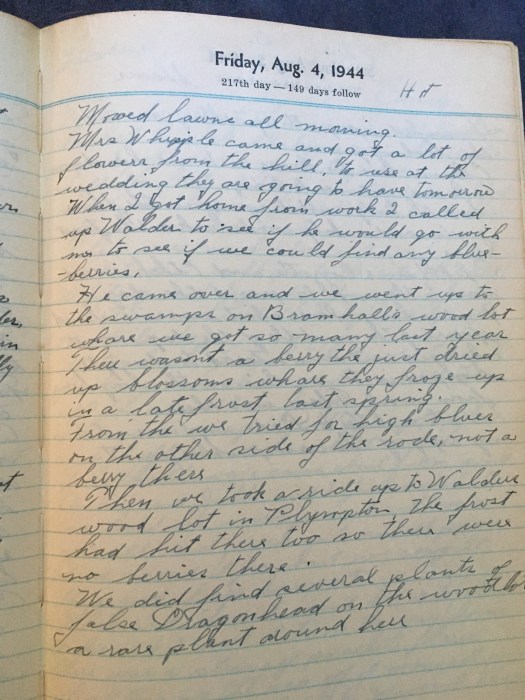 Friday, Aug. 4, 1944
217th day — 149 days follow
Hot
Mowed lawns all morning.
Mrs Whipple came and got a lot of
flowers from the hill, to use at the
wedding they are going to have tomorrow
When I got home from work I called
up Walder to see if he would go with
me to see if we could find any blue-
-berries.
He came over and we went up to
the swamps on Bramhall's wood lot
whare we got so many last year
There wasnt a berry the just dried
up blossoms whare they froze up
in a late frost last spring.
From the we tried for high blues
on the other side of the rode, not a
berry there
Then we took a ride up to Walders
wood lot in Plympton, the frost
had hit there too so there were
no berries there.
We did find several plants of
false Dragonhead on the woodlot
a rare plant around here